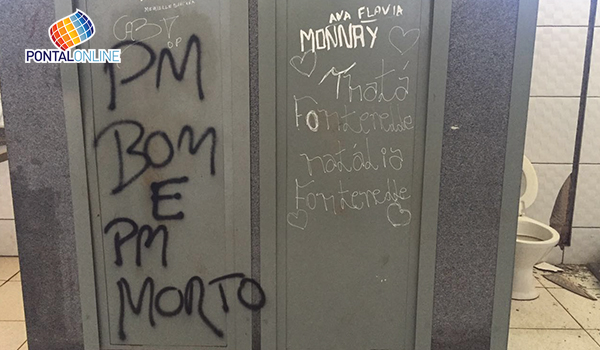 PONTALONLINE
PM
BOM
E
PM
MORTO
ANA FLAVIA
MONNAY
Thatá
Fonteredde
natália
Fonteredde